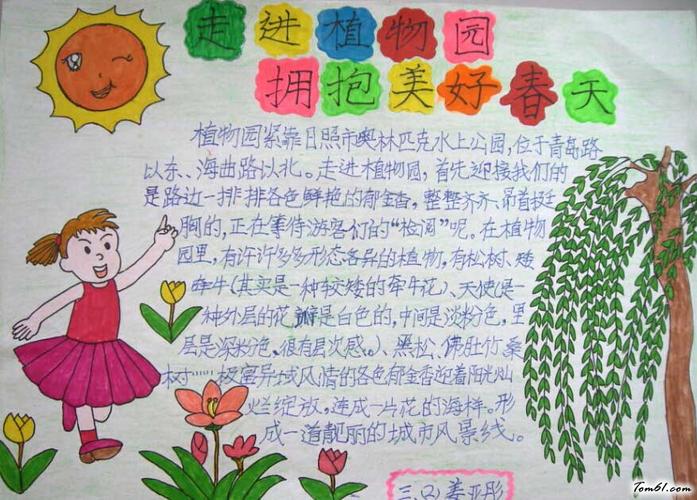 走进植物园
拥抱美好春天
植物园紧靠日照市奥林匹克水上公园,位于青岛路
以东、海曲路以北。走进植物园,首先迎接我们的
是路边一排排各色鲜艳的郁金香,整整齐齐、昂首挺
胸的,正在等待游客们的“检阅”呢。在植物
园里,有许许多多形态各异的植物,有松树、矮
牵牛(其实是一种较矮的牵牛花)、天使(是一
种外层的花瓣是白色的,中间是淡粉色,里
层是深粉色,很有层次感。)、黑松、佛肚竹、桑
树……极富异域风情的各色郁金香迎着阳光灿
烂绽放,连成一片花的海洋。形
成一道靓丽的城市风景线。
三、(2) 姜亚彤
Tom61.com